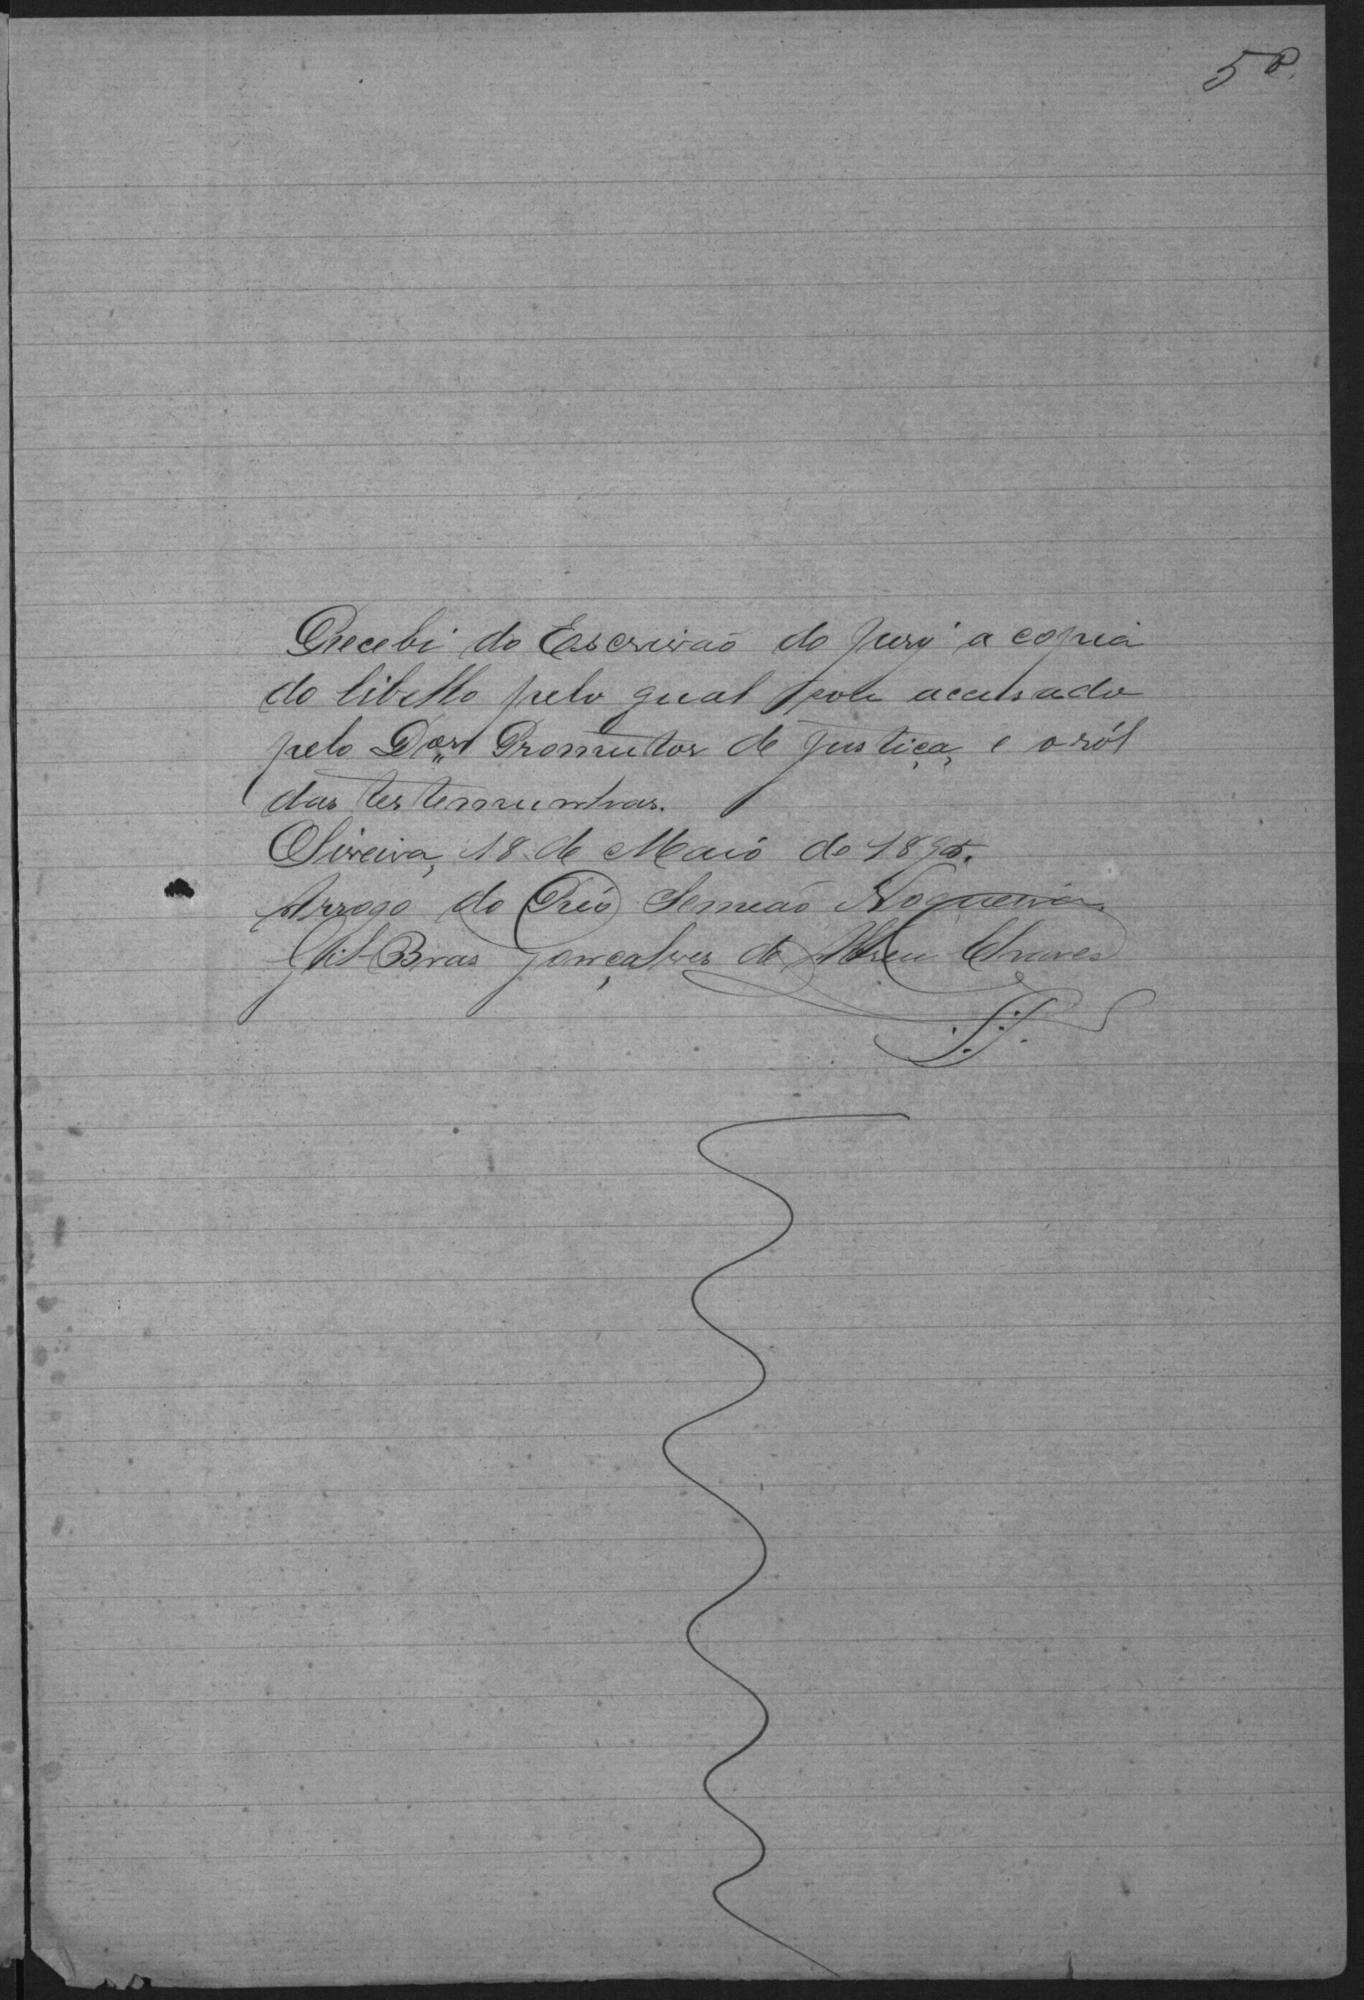 Recebi do Escrivão do Jury a copia
do libello pelo qual sou accusado
pelo Dor Promutor de Justiça, e o ról
das testemunhas.
Oliveira, 18 de Maio de
Arrogo do Réo Semeão Nogueira
Gil Bras Gonçalves de Abreu Chaves